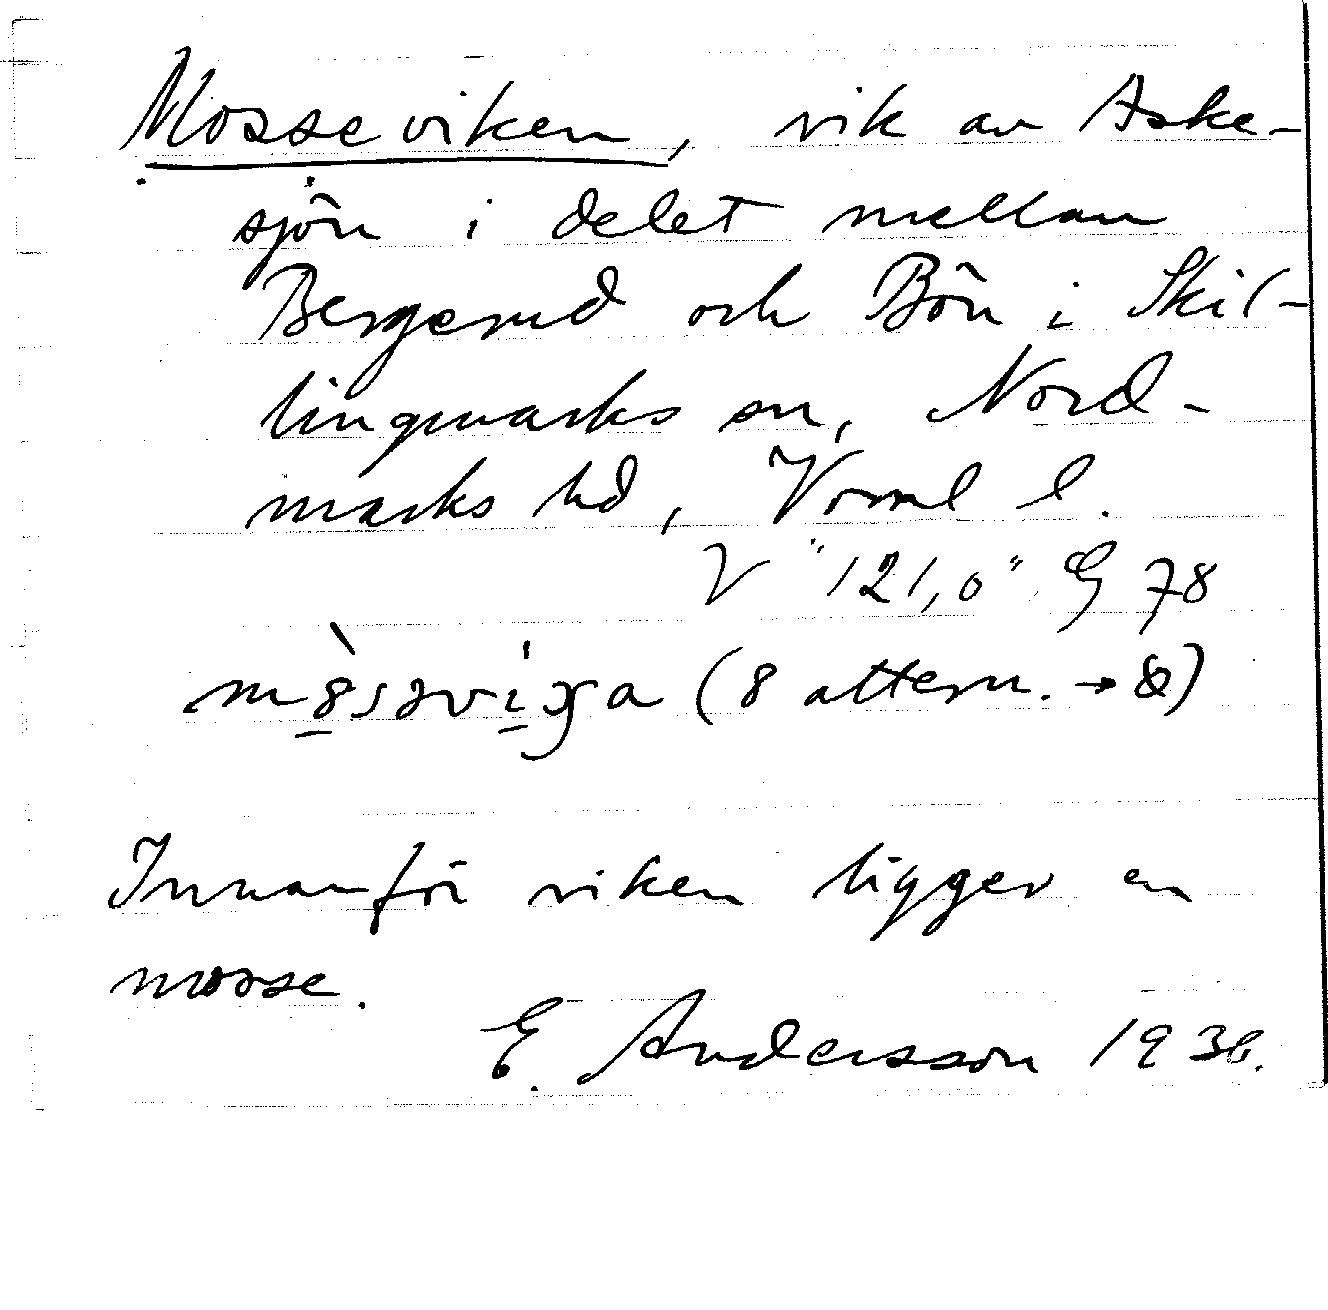 Mosseviken, vik av Aske-
sjön i delet mellan
Bergerud och Bön i Skil-
lingmarks sn, Nord-
marks hd, Vrml l.
V "121,0" G 78
(8 altern. →
Innanför viken ligger en
mosse.
E. Andersson 1936.